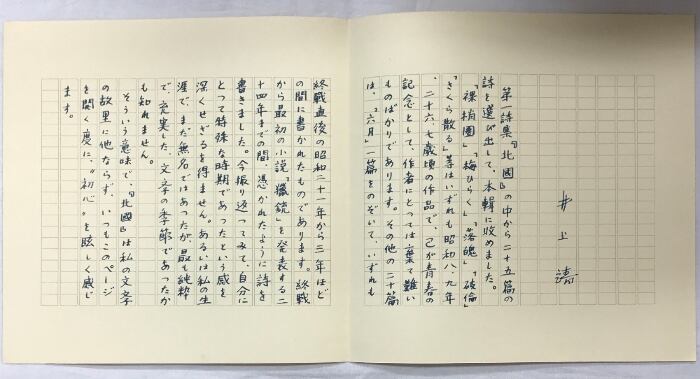 井上靖
第一詩集『北國』の中から二十五篇の
詩を選び出して、本輯に收めました。
「裸梢園」「梅ひらく」「落魄」「破倫」
「さくら散る」等はいずれも昭和八、九年
、二十六、七歳頃の作品で、己が青春の
記念として、作者にとっては棄て難い
ものばかりであります。その他の二十篇
は、「六月」一篇をのぞいて、いずれも
終戰直後の昭和二十一年から三年ほど
の間に書かれたものであります。終戰
から最初の小説「獵銃」を発表する二
十四年までの間、憑かれたように詩を
書きました。今振り返ってみて、自分に
とって特殊な時期であったという感を
深くせざるを得ません。あるいは私の生
涯で、まだ無名ではあったが、最も純粋
で、充実した文学の季節であったか
も知れません。
そういう意味で、『北國』は私の文学
の故里に他ならず、いつもこのページ
を開く度に、“初心”を眩しく感じ
ます。